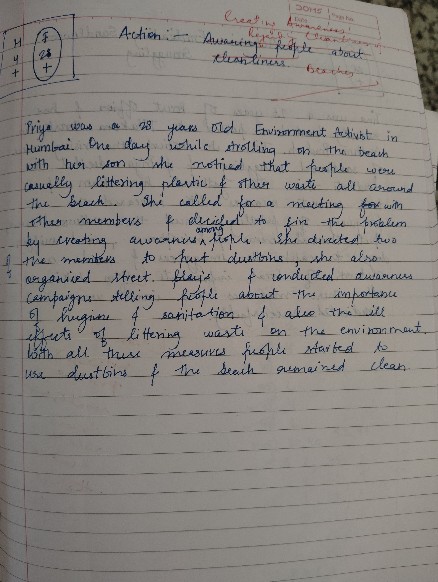 Creative Awareness
Action :- Awaring people about
cleanliness.
Beaches
H F
4 28
+ +
Priya was a 28 years old Environment Activist in
Mumbai. One day while strolling on the beach
with her son she notired that people were
casually littering plastic & other waste all around
the beach. She called for a meeting for with
other members & decided to fix the problem
by creating awarness among people. She divited two
the members to put dustbins, she also
organised street plays & conducted awarness
campaigns telling people about the importance
of hugiene & sanitation & also the ill
effects of littering waste on the environment.
With all these measures people started to
use dustbins & the beach remained clean